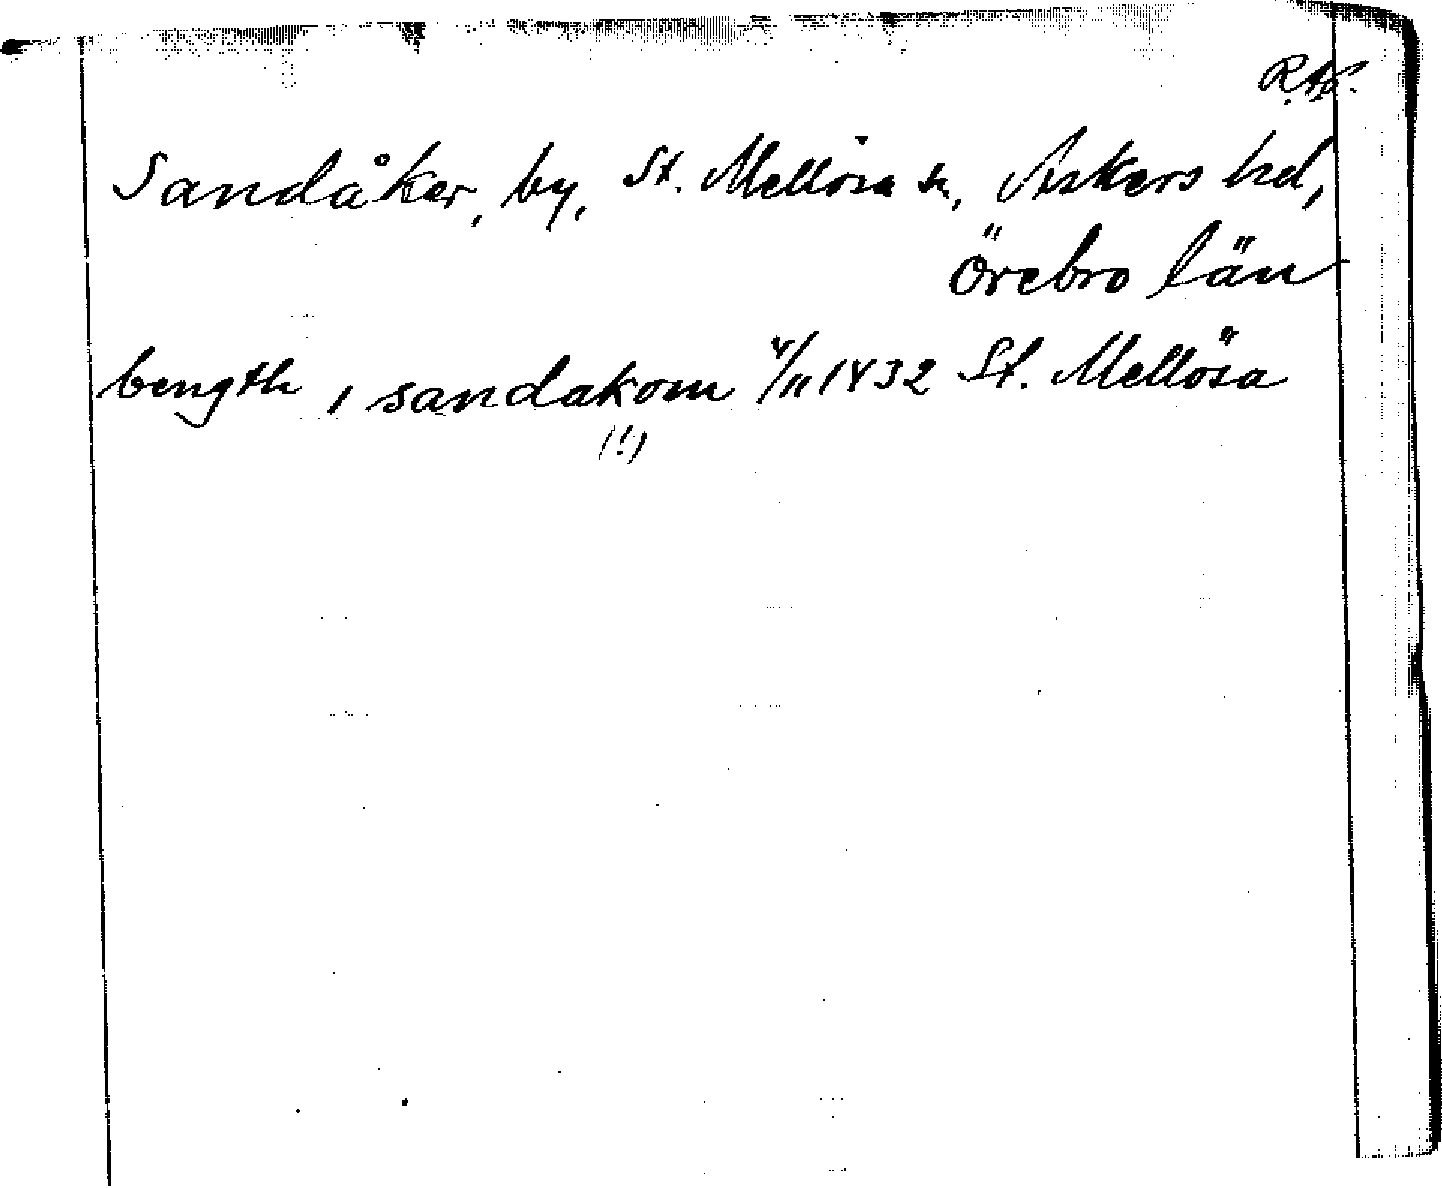 R.Ap.
Sandåker, by, St. Mellösa sn, Askers hd,
Örebro län
bength i sandakom 4/11 1432 St. Mellösa
(!)